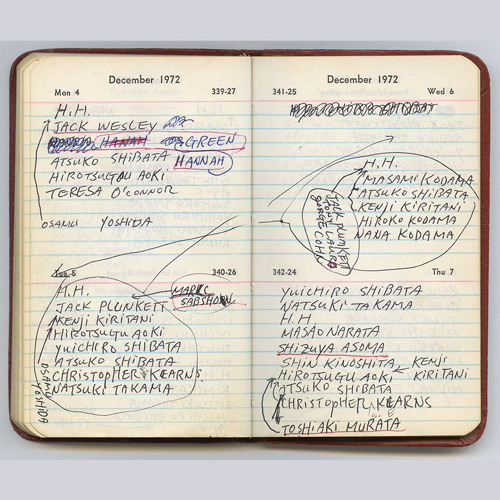 December 1972
Mon 4 339-27
H.H.
JACK WESLEY
HANAH GREEN
ATSUKO SHIBATA HANNAH
HIROTSUGU AOKI
TERESA O'CONNOR
OSAMU YOSHIDA
Tue 5 340-26
H.H. MARK
SABSHORN
JACK PLUNKETT
KENJI KIRITANI
HIROTSUGU AOKI
YUICHIRO SHIBATA
ATSUKO SHIBATA
CHRISTOPHER KEARNS
NATSUKI TAKAMA
OSAMU YOSHIDA
December 1972
341-25 Wed 6
H.H.
MASAMI KODAMA
ATSUKO SHIBATA
KENJI KIRITANI
HIROKO KODAMA
NANA KODAMA
JACK PLUNKETT
LAURA
GEORGE COHN
342-24 Thu 7
YUICHIRO SHIBATA
NATSUKI TAKAMA
H.H
MASAO NARATA
SHIZUYA ASOMA
SHIN KINOSHITA KENJI
HIROTSUGU AOKI KIRITANI
ATSUKO SHIBATA
CHRISTOPHER KEARNS
TOSHIAKI MURATA